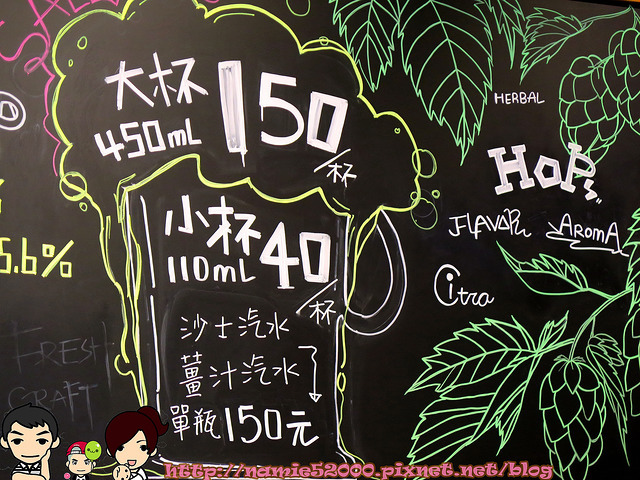 大杯
450mL
150/杯
小杯
110mL
40/杯
沙士汽水
薑汁汽水
單瓶150元
5.6%
FRESH
CRAFT
HERBAL
HOP
FLAVOR
AROMA
Citra
http://namie52000.pixnet.net/blog